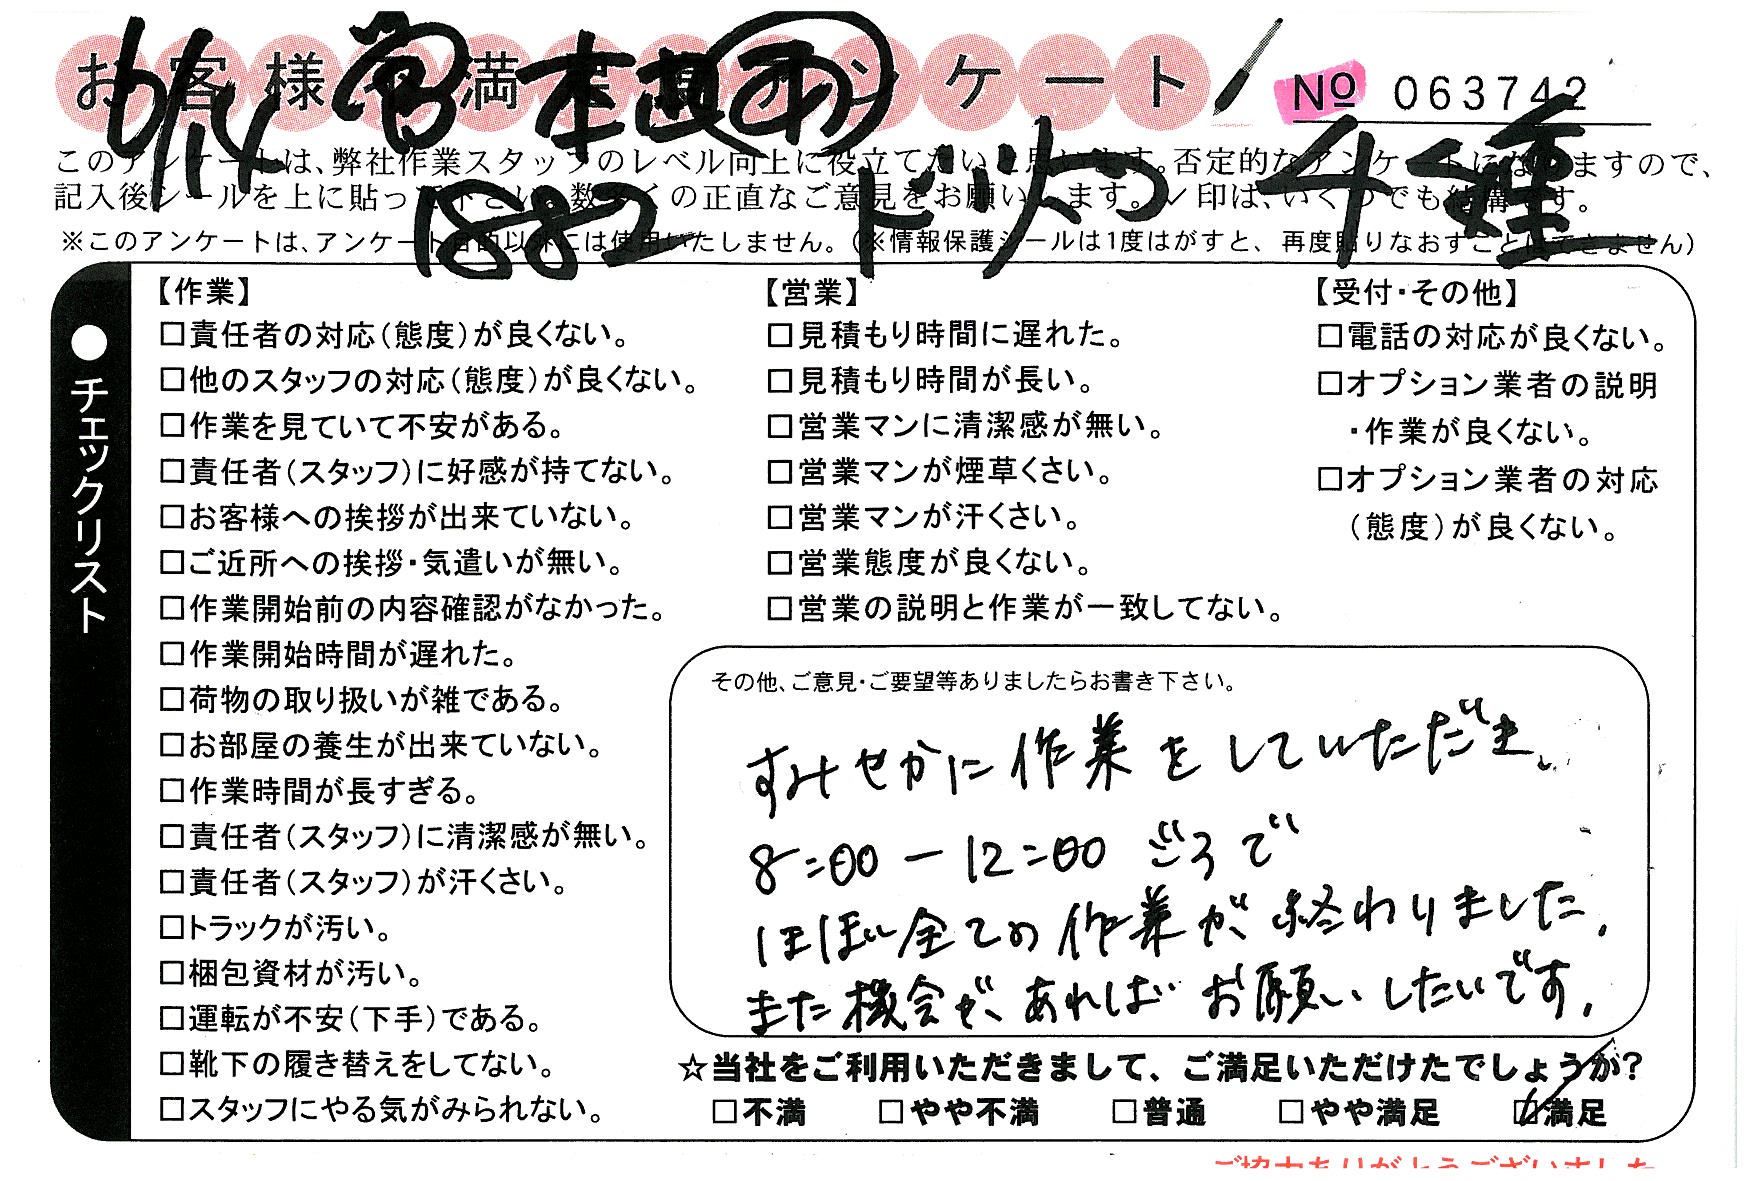 お客様満足度アンケート
No 063742
1882 トリパコ 千種
このアンケートは、弊社作業スタッフのレベル向上に役立てたいと思います。否定的なアンケートになりますので、
記入後シールを上に貼って下さい。数多くの正直なご意見をお願いします。✓印は、いくつでも結構です。
※このアンケートは、アンケート目的以外には使用いたしません。（※情報保護シールは1度はがすと、再度貼りなおすことはできません）
●チェックリスト
【作業】
□責任者の対応（態度）が良くない。
□他のスタッフの対応（態度）が良くない。
□作業を見ていて不安がある。
□責任者（スタッフ）に好感が持てない。
□お客様への挨拶が出来ていない。
□ご近所への挨拶・気遣いが無い。
□作業開始前の内容確認がなかった。
□作業開始時間が遅れた。
□荷物の取り扱いが雑である。
□お部屋の養生が出来ていない。
□作業時間が長すぎる。
□責任者（スタッフ）に清潔感が無い。
□責任者（スタッフ）が汗くさい。
□トラックが汚い。
□梱包資材が汚い。
□運転が不安（下手）である。
□靴下の履き替えをしてない。
□スタッフにやる気がみられない。
【営業】
□見積もり時間に遅れた。
□見積もり時間が長い。
□営業マンに清潔感が無い。
□営業マンが煙草くさい。
□営業マンが汗くさい。
□営業態度が良くない。
□営業の説明と作業が一致してない。
【受付・その他】
□電話の対応が良くない。
□オプション業者の説明
・作業が良くない。
□オプション業者の対応
（態度）が良くない。
その他、ご意見・ご要望等ありましたらお書き下さい。
すみせかに作業をしていただき、
8:00 ー 12:00 ごろで
ほぼ全ての作業が終わりました。
また機会があればお願いしたいです。
☆当社をご利用いただきまして、ご満足いただけたでしょうか？
□不満 □やや不満 □普通 □やや満足 ☑満足
ご協力ありがとうございました